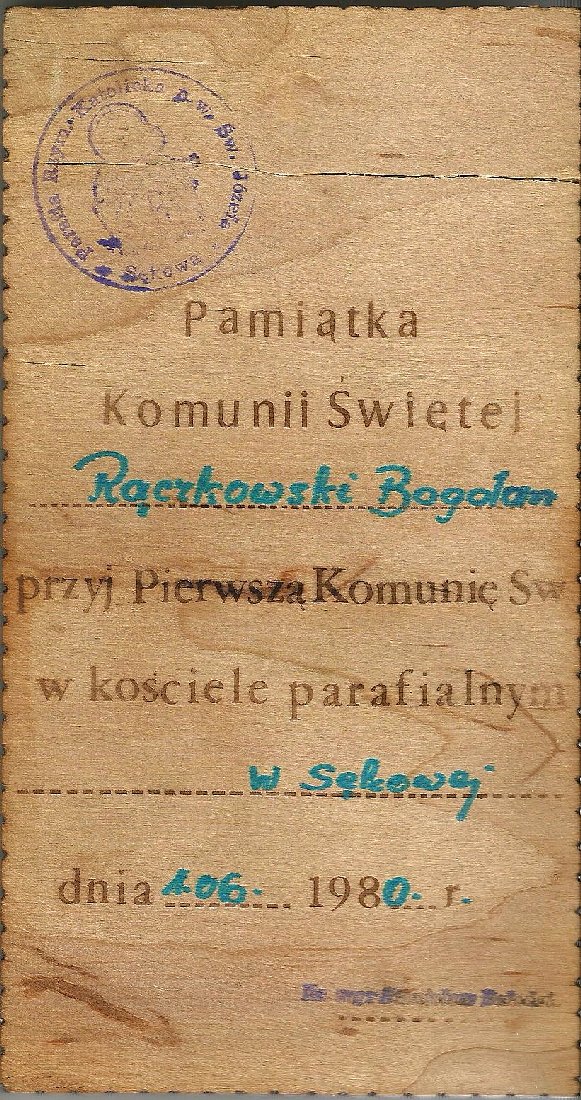 Parafia Rzym. Katolicka p. w. Św. Józefa
Sękowa
Pamiątka
Komunii Świętej
Rączkowski Bogdan
przyj Pierwszą Komunię Sw
w kościele parafialnym
w Sękowej
dnia 1.06. 1980. r.
Ks mgr